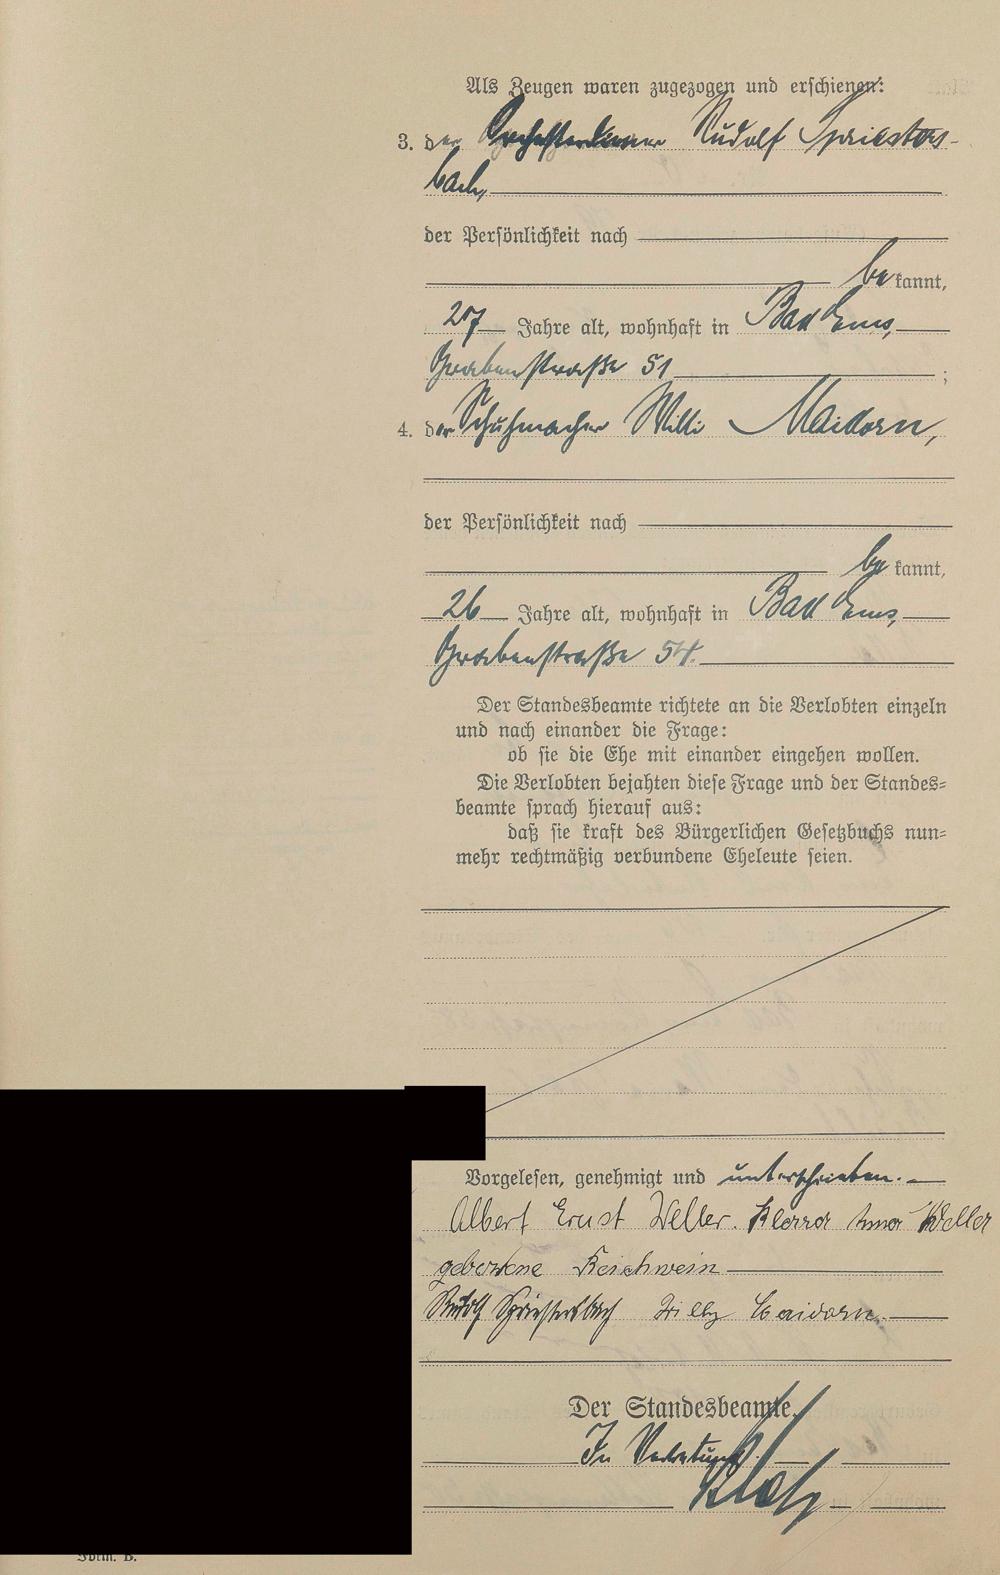 Als Zeugen waren zugezogen und erschienen:
3. der Rudolf Spriesters-
bach,
der Persönlichkeit nach
bekannt,
27 Jahre alt, wohnhaft in Bad Ems,
Grabenstraße 51;
4. der Schuhmacher Willi Maidorn,
der Persönlichkeit nach
bekannt,
26 Jahre alt, wohnhaft in Bad Ems,
Grabenstraße 54.
Der Standesbeamte richtete an die Verlobten einzeln
und nach einander die Frage:
ob sie die Ehe mit einander eingehen wollen.
Die Verlobten bejahten diese Frage und der Standes-
beamte sprach hierauf aus:
daß sie kraft des Bürgerlichen Gesetzbuchs nun-
mehr rechtmäßig verbundene Eheleute seien.
Vorgelesen, genehmigt und unterschrieben.
Albert Ernst Weller. Klara Anna Weller
geborene Reichwein
Rudolf Spriestersbach Willy Maidorn.
Der Standesbeamte.
In Vertretung.
Form. B.